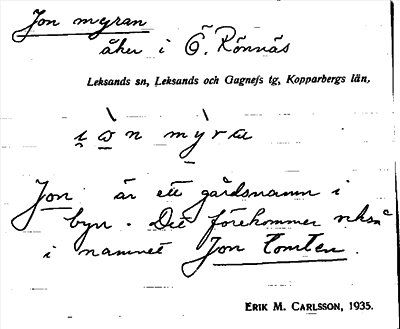 Jon myran
åker i Ö. Rönnäs
Leksands sn, Leksands och Gagnefs tg, Kopparbergs län.
i̯ òn mỳra
Jon är ett gårdsnamn i
byn. Det förekommer också
i namnet Jon tomten.
ERIK M. CARLSSON, 1935.